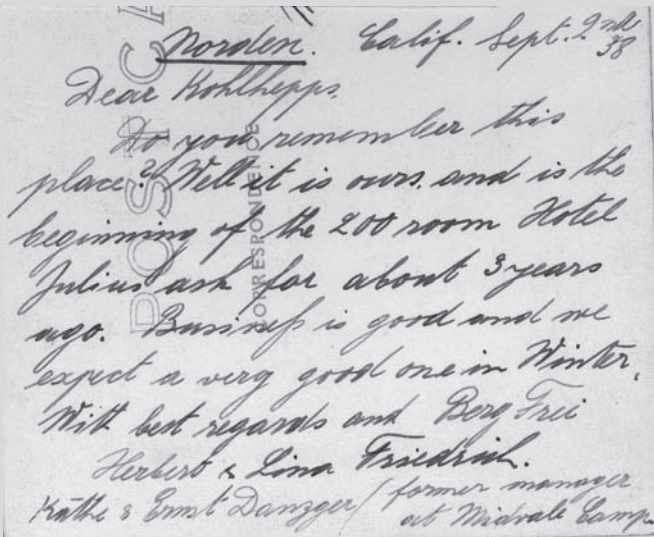 POST CA
CORRESPONDENCE
Norden. Calif. Sept. 2nd
38
Dear Kohlhepps,
Do you remember this
place? Well it is ours. and is the
beginning of the 200 room Hotel
Julius ask for about 3 years
ago. Business is good and we
expect a very good one in Winter.
With best regards and Berg Frei
Herbert & Lina Friedrich.
Käthe & Ernst Danzger / former manager
at Midvale Camp.